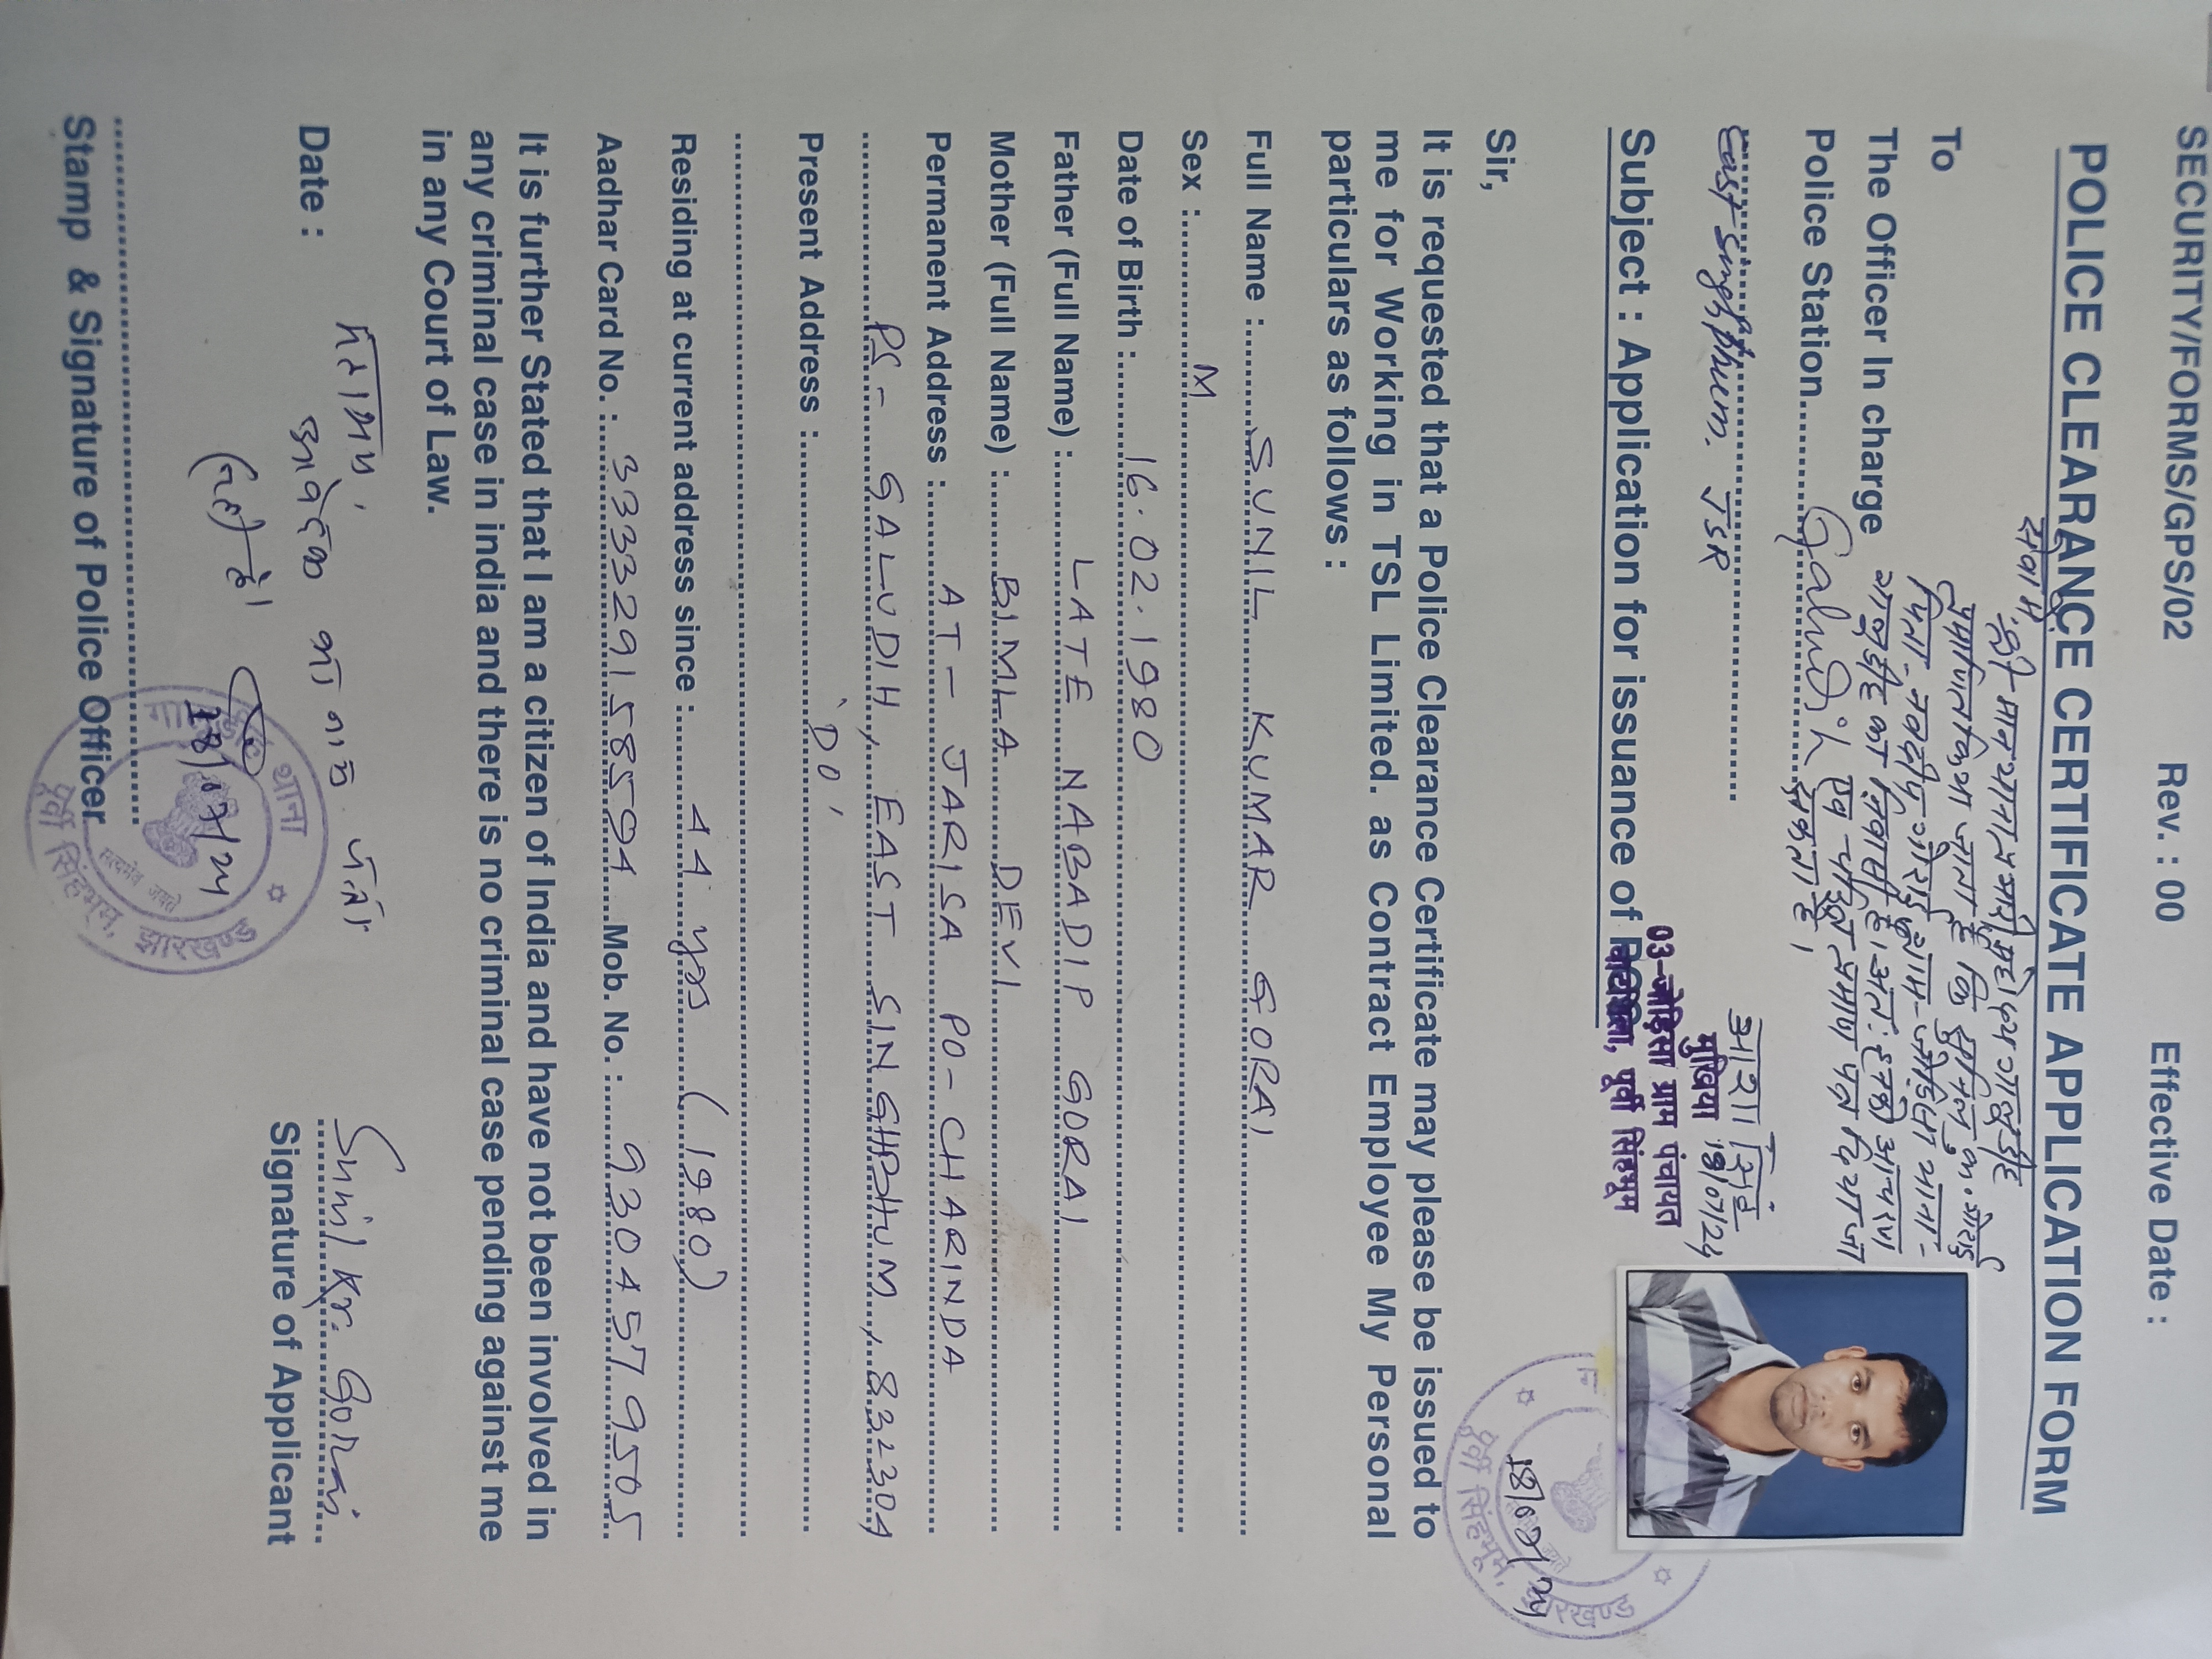 SECURITY/FORMS/GPS/02 Rev. : 00 Effective Date :
POLICE CLEARANCE CERTIFICATE APPLICATION FORM
To
The Officer In charge
Police Station.......Galudih
East Singhbhum. JSR
सेवा में,
श्री मान थाना प्रभारी महोदय गालुडीह
प्रमाणित किया जाता है कि सुनिल कु. गोराई
पिता - नवदीप गोराई ग्राम - जोड़िसा थाना -
गालुडीह का निवासी है। अतः इनकी आचरण
एवं चरित्र प्रमाण पत्र दिया जा
सकता है।
आशा सिंह
मुखिया 18/07/24
03-जोड़िसा ग्राम पंचायत
घाटशिला, पूर्वी सिंहभूम
Subject : Application for issuance of
Sir,
It is requested that a Police Clearance Certificate may please be issued to
me for Working in TSL Limited. as Contract Employee My Personal
particulars as follows :
18/07/24
पूर्वी सिंहभूम, झारखण्ड
Full Name : SUNIL KUMAR GORAI
Sex : M
Date of Birth : 16.02.1980
Father (Full Name) : LATE NABADIP GORAI
Mother (Full Name) : BIMLA DEVI
Permanent Address : AT - JARISA PO - CHARINDA
PS - GALUDIH, EAST SINGHBHUM, 832304
Present Address : 'DO'
Residing at current address since : 44 yrs (1980)
Aadhar Card No. : 333329158594 Mob. No. : 9304579505
It is further Stated that I am a citizen of India and have not been involved in
any criminal case in india and there is no criminal case pending against me
in any Court of Law.
महाशय,
आवेदक का नाम पता
सही है।
Date :
Sunil Kr. Gorai
Signature of Applicant
18/07/24
थाना
सत्यमेव जयते
पूर्वी सिंहभूम, झारखण्ड
Stamp & Signature of Police Officer